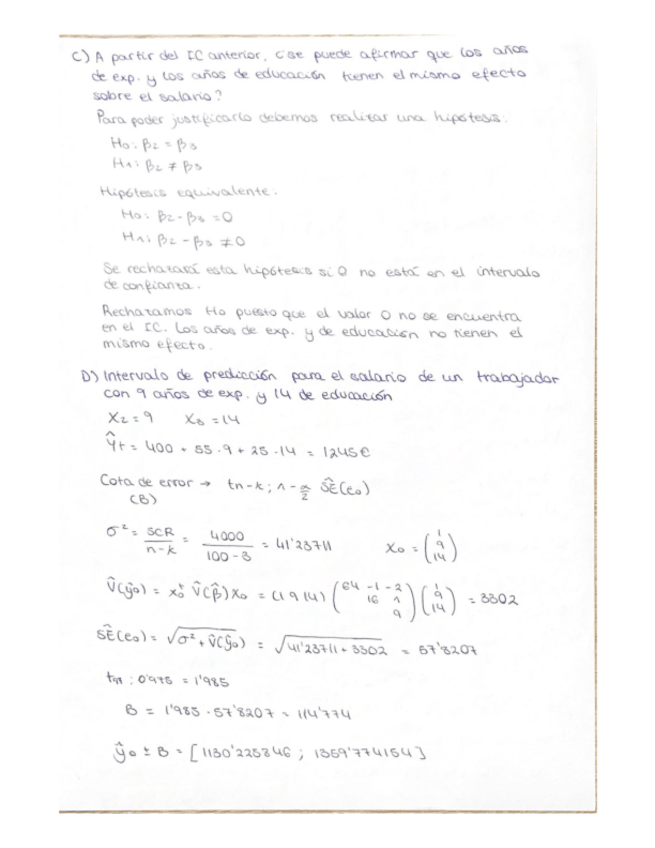 C) A partir del IC anterior, ¿se puede afirmar que los años
de exp. y los años de educación tienen el mismo efecto
sobre el salario?
Para poder justificarlo debemos realizar una hipótesis.
H₀: β₂ = β₃
H₁: β₂ ≠ β₃
Hipótesis equivalente.
H₀: β₂ - β₃ = 0
H₁: β₂ - β₃ ≠ 0
Se rechazará esta hipótesis si 0 no está en el intervalo
de confianza.
Rechazamos H₀ puesto que el valor 0 no se encuentra
en el IC. Los años de exp. y de educación no tienen el
mismo efecto.
D) Intervalo de predicción para el salario de un trabajador
con 9 años de exp. y 14 de educación
X₂ = 9 X₃ = 14
Ŷt = 400 + 55·9 + 25·14 = 1245€
Cota de error → tn-k; 1-α/2 ŜE(e₀)
(B)
σ² = SCR/n-k = 4000/100-3 = 41'23711 X₀ = (1 9 14)
V̂(ŷ₀) = x₀ᵗ V̂(β̂) X₀ = (1 9 14) (64 -1 -2 16 1 9) (1 9 14) = 3302
ŜE(e₀) = √σ² + V̂(ŷ₀) = √41'23711 + 3302 = 57'8207
t₉₇; 0'975 = 1'985
B = 1'985 · 57'8207 = 114'774
ŷ₀ ± B = [1130'225846 ; 1359'774154]